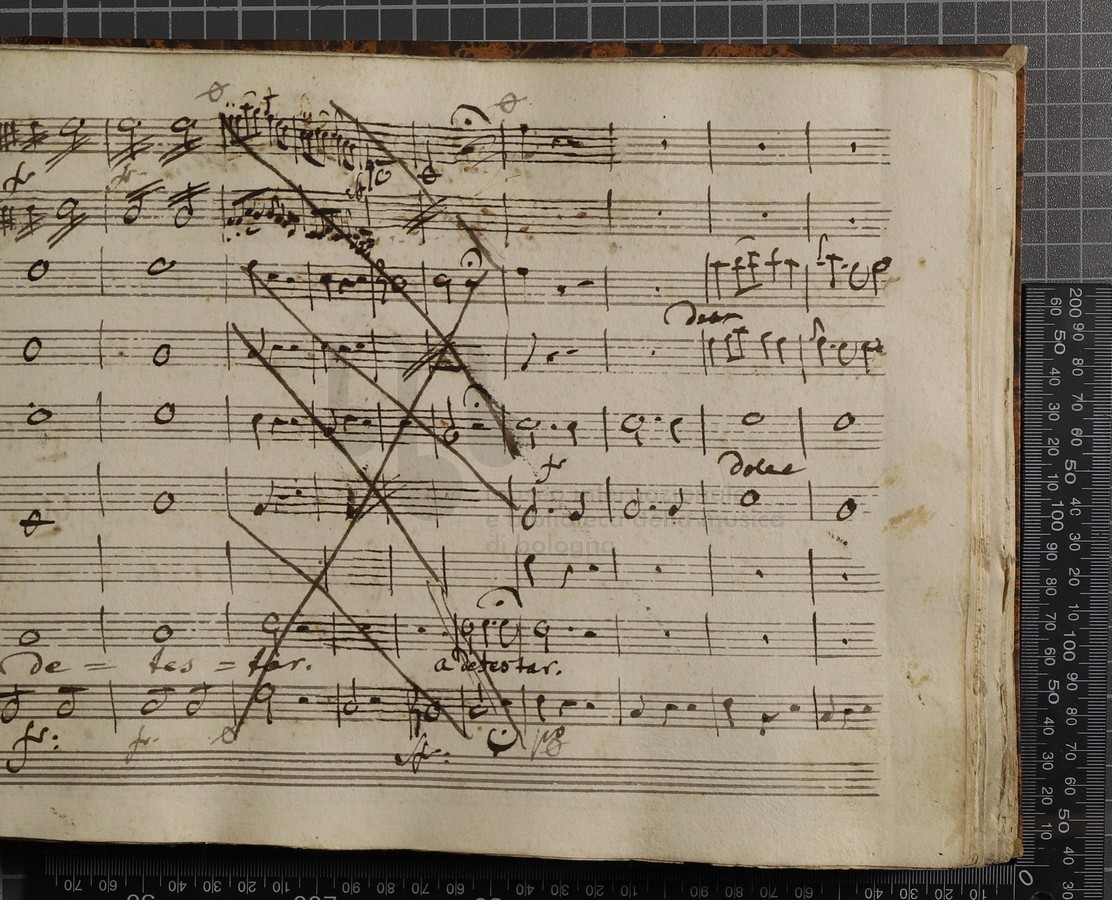 fr
fr
dolce
fr
dolce
de = tes = tar.
a detestar.
fr:
fr.
sfr:
museo internazionale
e biblioteca della musica
di bologna
200
90
80
70
60
50
40
30
20
10
100
90
80
70
60
50
40
30
20
10
0
60
50
40
30
20
10
100
90
80
70
60
50
40
30
70
60
50
40
30
20
10
90
80
70
60
50
40
30
20
10
90
80
70
60
50
40
30
20
10